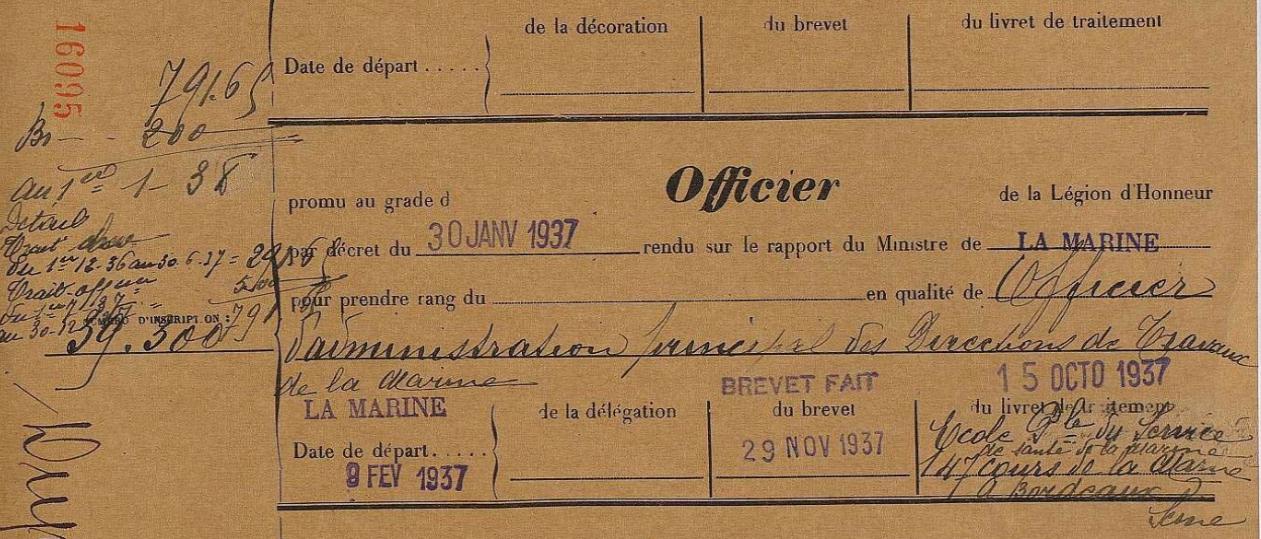 16095
de la décoration du brevet du livret de traitement
Date de départ . . . . .
791.65
Bs — - 200
au 1er 1 - 38
promu au grade d Officier de la Légion d'Honneur
par décret du 30 JANV 1937 rendu sur le rapport du Ministre de LA MARINE
Detail
Trait
du 1er 12.36 au 30.6.37 =
Trait - officier
500
pour prendre rang du en qualité de Officier
du 1er 7/37
au 30-12 791
NUMÉRO D'INSCRIPTION :
39.300
d'administration principal des Directions de Travaux
de la Marine
LA MARINE
BREVET FAIT
15 OCTO 1937
de la délégation du brevet du livret de traitement
Date de départ. . . . .
9 FEV 1937
29 NOV 1937
Ecole Ple du Service
de santé de la Marine
147 cours de la Marne
à Bordeaux